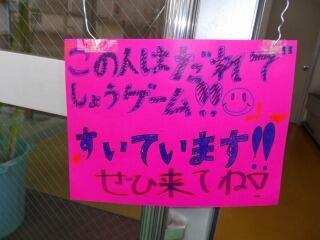 この人はだれで
しょうゲーム!!
すいています!!
ぜひ来てね♡